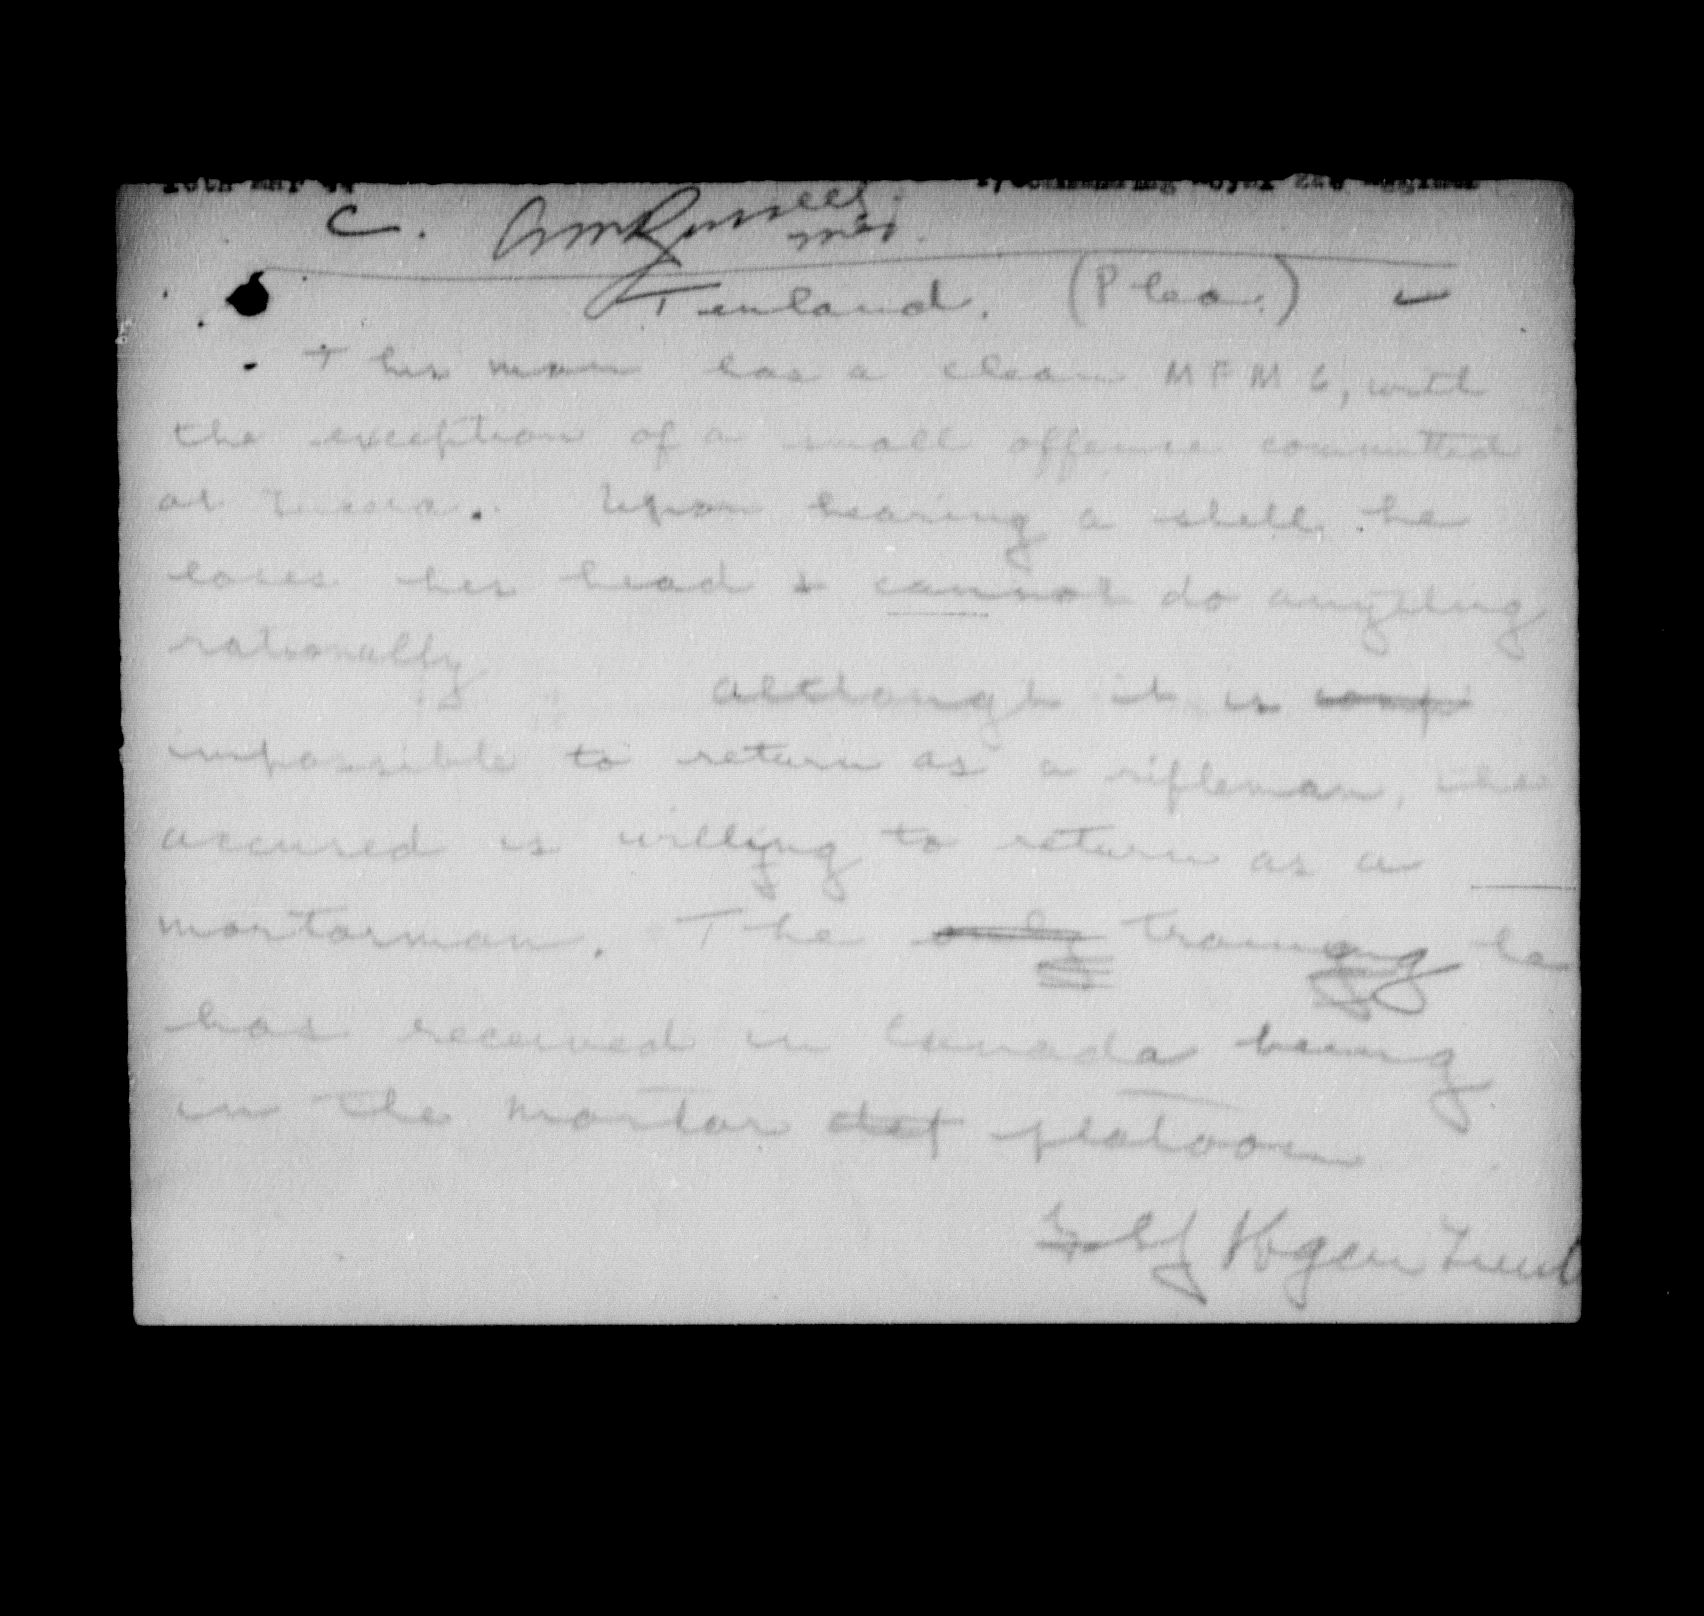 C. Maj.
Tenland. (Plea.)
This man has a clean MFM 6, with
the exception of a small offence committed
at . Upon hearing a shell he
loses his head & cannot do anything
rationally
although it is
impossible to return as a rifleman, the
accused is willing to return as a
mortarman. The only training he
has received in Canada being
in the mortar det platoon